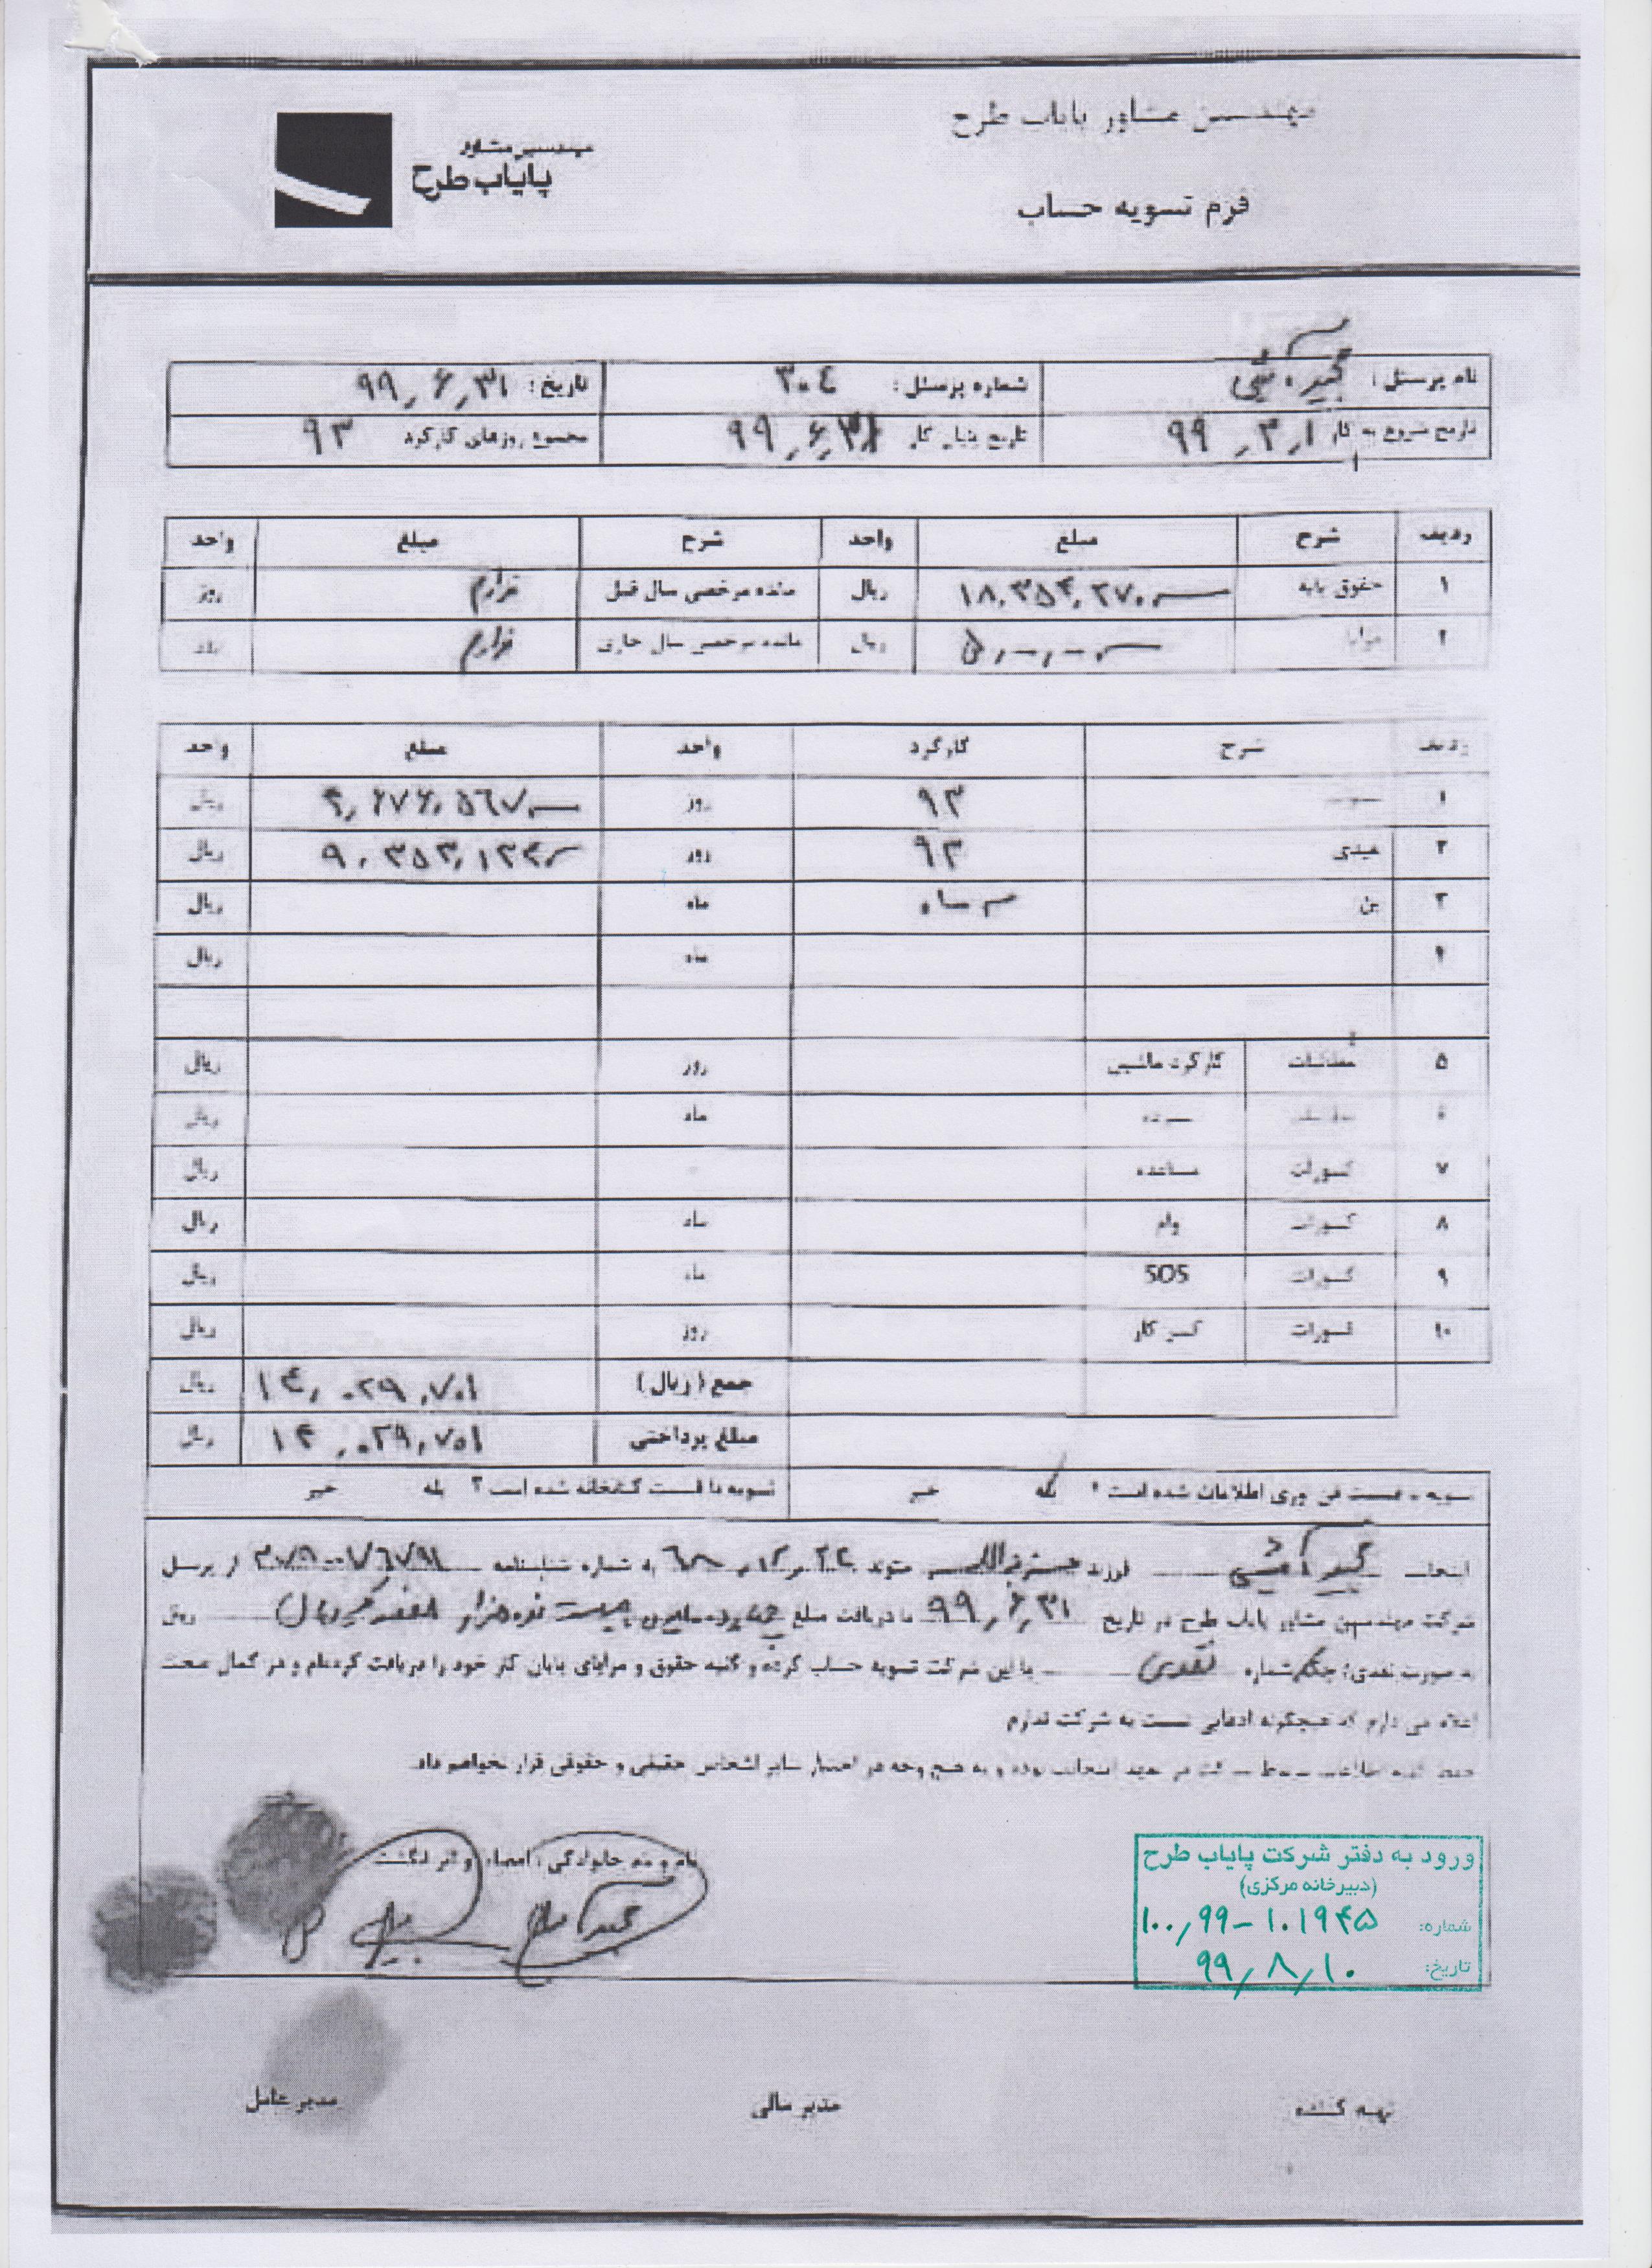 مهندسین مشاور پایاب طرح
مهندسین مشاور
پایاب طرح
فرم تسویه حساب
نام پرسنل : شماره پرسنل : ۳۰٤ تاریخ : ۹۹٫۶٫۳۱
تاریخ شروع به کار ۹۹٫۳٫۱ تاریخ پایان کار ۹۹٫۶٫۳۱ مجموع روزهای کارکرد ۹۳
ردیف شرح مبلغ واحد شرح مبلغ واحد
۱ حقوق پایه ۱۸٫۳۵۴٫۲۷۰ ریال مانده مرخصی سال قبل ندارم روز
۲ مزایا ریال مانده مرخصی سال جاری ندارم
ردیف شرح کارکرد واحد مبلغ واحد
۱ ۹۳ روز ۴٫۶۷۶٫۵۶۷ ریال
۲ عیدی ۹۳ روز ۹٫۳۵۳٫۱۳۴ ریال
۳ بن ۳ ماه ماه ریال
۴ ماه ریال
۵ کارکرد ماشین روز ریال
۶ ماه ریال
۷ کسورات مساعده ریال
۸ کسورات وام ماه ریال
۹ کسورات 505 ماه ریال
۱۰ کسورات کسر کار روز ریال
جمع (ریال) ۱۴٫۰۲۹٫۷۰۱ ریال
مبلغ پرداختی ۱۴٫۰۲۹٫۷۰۱ ریال
تسویه با قسمت فن آوری اطلاعات شده است ؟ بله خیر تسویه با قسمت کتابخانه شده است ؟ بله خیر
اینجانب فرزند متولد به شماره شناسنامه از پرسنل
شرکت مهندسین مشاور پایاب طرح در تاریخ ۹۹٫۶٫۳۱ با دریافت مبلغ چهارده میلیون و بیست نه هزار هفتصد یک ریال ریال
به صورت نقدی / چک شماره نقدی با این شرکت تسویه حساب کرده و کلیه حقوق و مزایای پایان کار خود را دریافت کرده‌ام و در کمال صحت
اعلام می دارم که هیچگونه ادعایی نسبت به شرکت ندارم
حفظ کلیه اطلاعات مرتبط شرکت در عهد اینجانب بوده و به هیچ وجه در اختیار سایر اشخاص حقیقی و حقوقی قرار نخواهم داد.
نام و نام خانوادگی ، امضاء و اثر انگشت
ورود به دفتر شرکت پایاب طرح
(دبیرخانه مرکزی)
شماره: ۱۰۰٫۹۹-۱۰۱۹۴۵
تاریخ: ۹۹٫۸٫۱۰
تهیه کننده مدیر مالی مدیر عامل